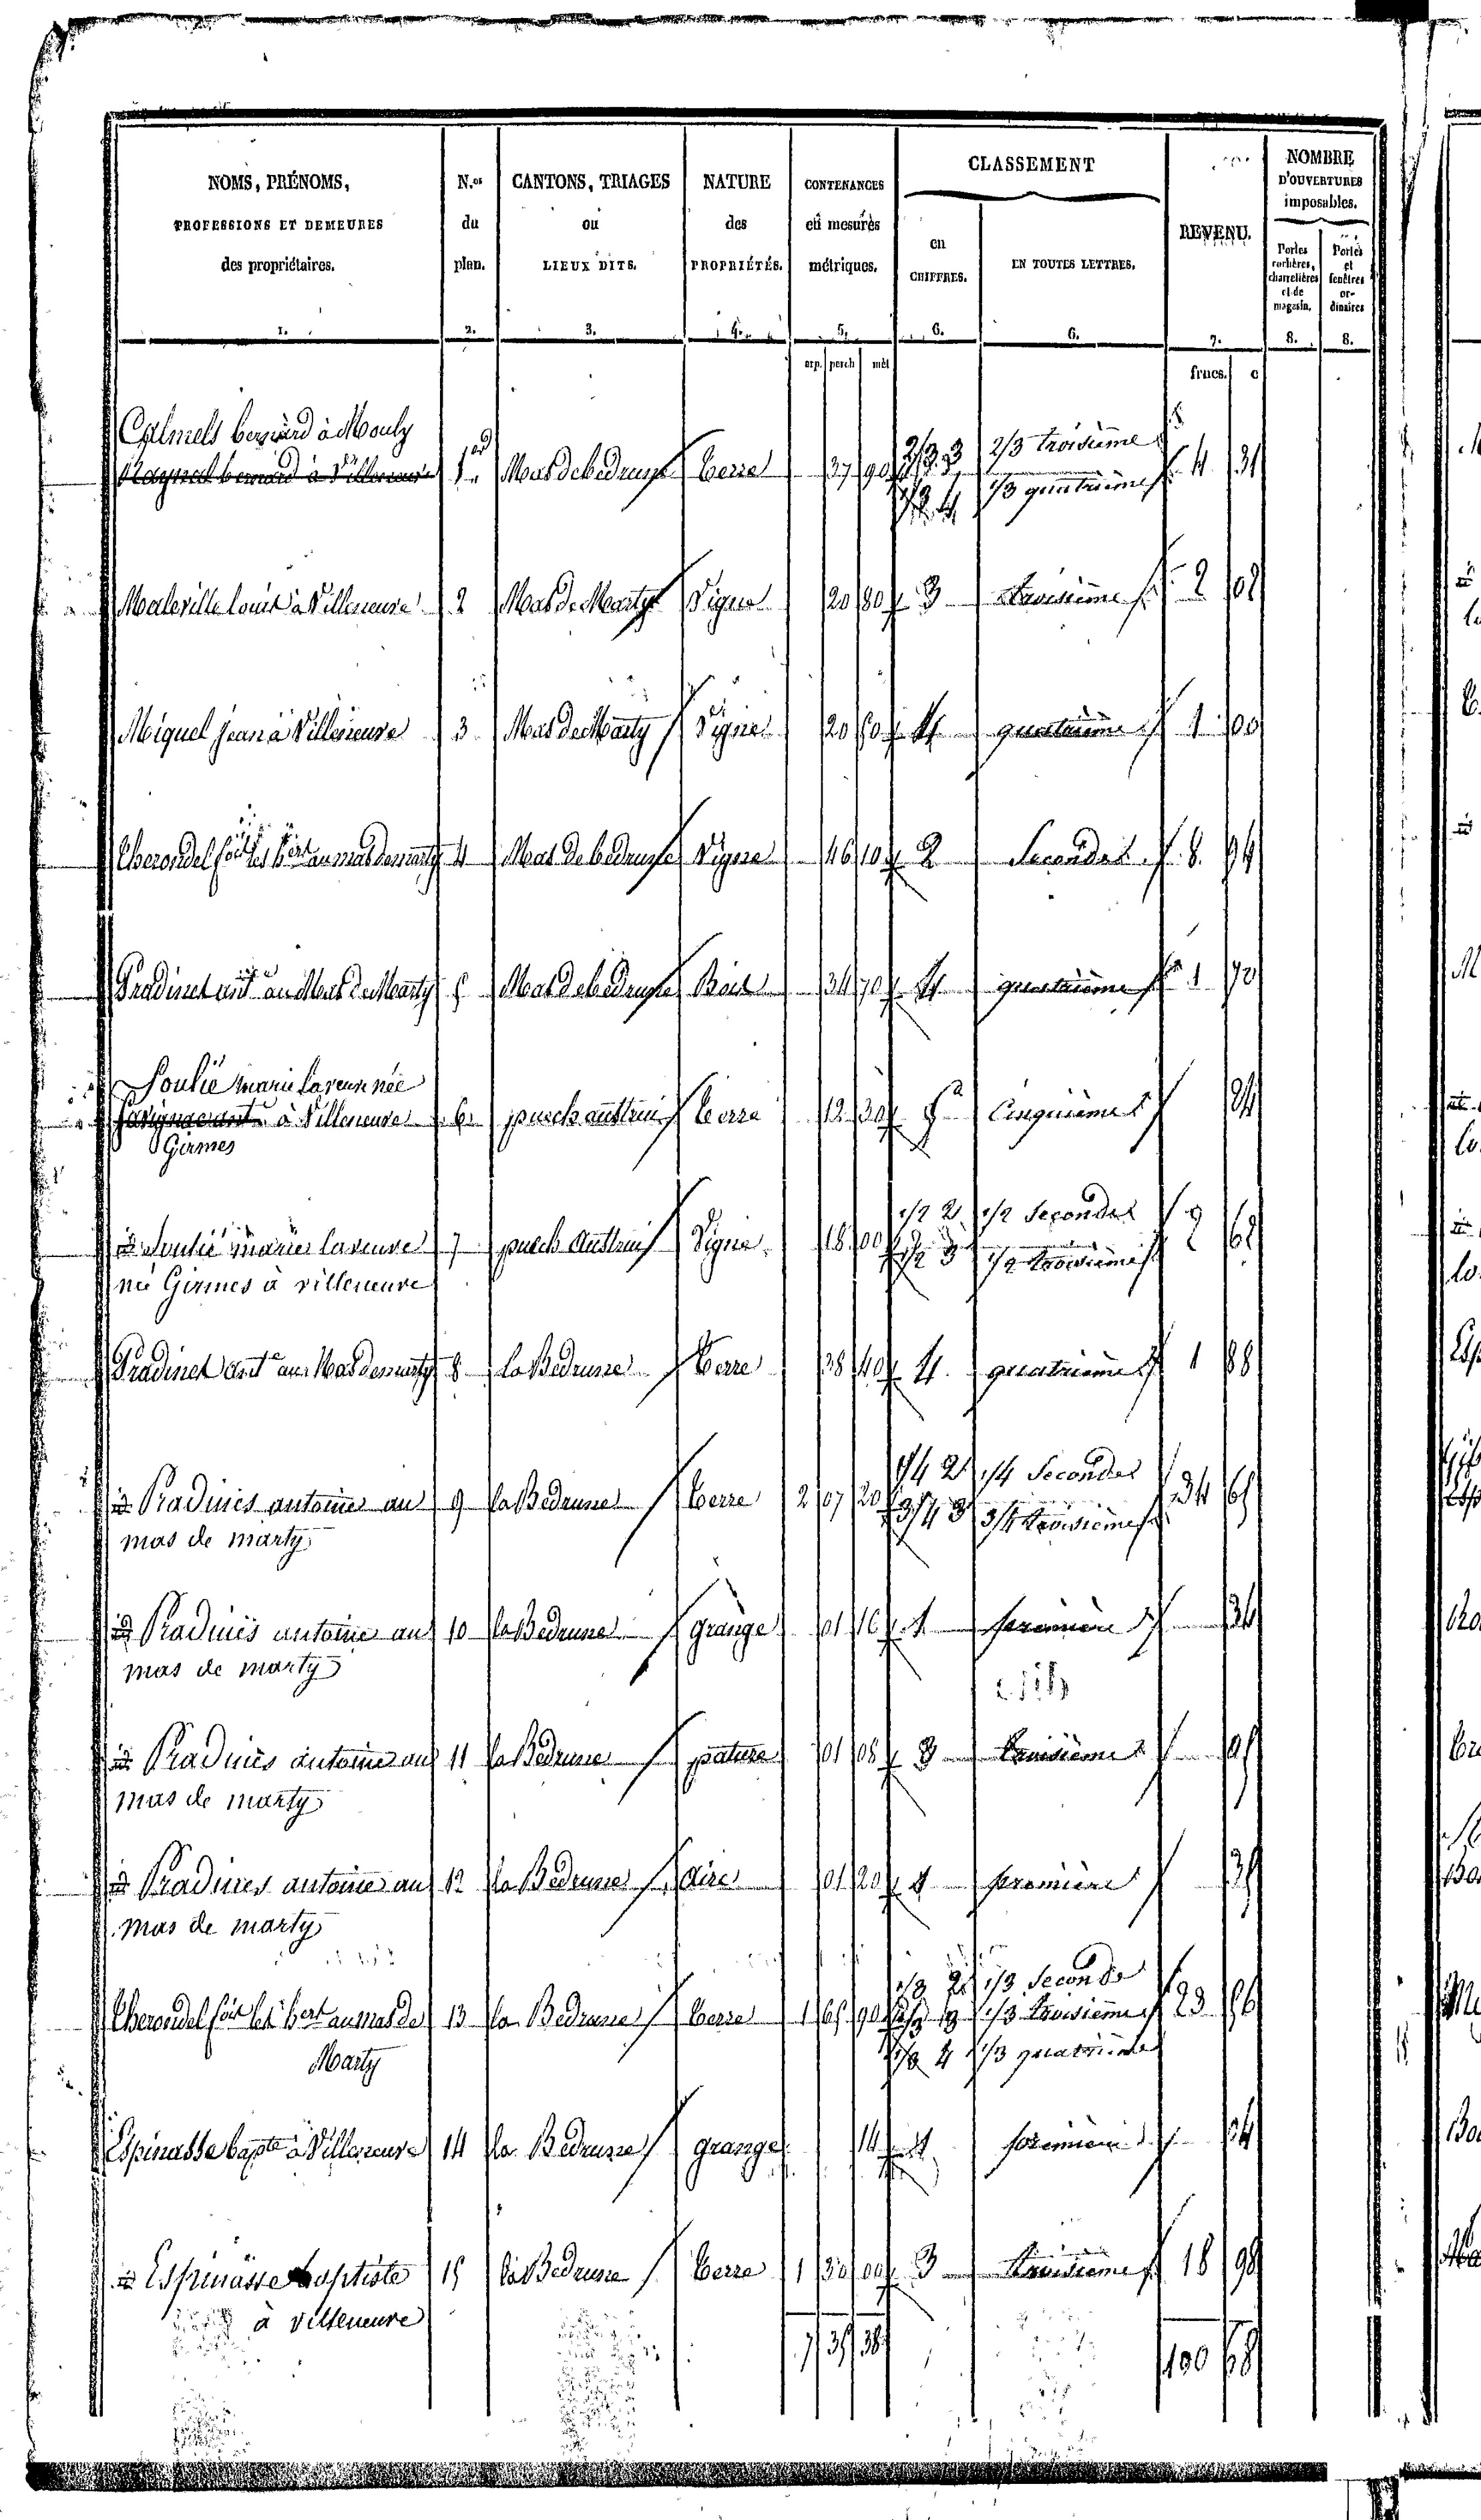 NOMS, PRÉNOMS, N.os CANTONS, TRIAGES NATURE CONTENANCES CLASSEMENT REVENU. NOMBRE
PROFESSIONS ET DEMEURES du ou des en mesures en EN TOUTES LETTRES. D'OUVERTURES
des propriétaires. plan. LIEUX DITS. PROPRIÉTÉS. métriques. CHIFFRES. imposables.
Portes cochères, charretières et de magasin. Portes et fenêtres ordinaires
1. 2. 3. 4. 5. 6. 6. 7. 8. 8.
arp. perch mèt francs. c
Calmels bernard à Mouly
Raynal bernard à Villeneuve 1 Mas de bedrune terre 37 90 2/3 3 2/3 troisième 4 31
1/3 4 1/3 quatrième
Maleville louis à Villeneuve 2 Mas de Marty Vigne 20 80 3 troisième 2 08
Miquel Jean à Villeneuve 3 Mas de Marty Vigne 20 60 4 quatrième 1 00
au mas de marty 4 Mas de bedrune Vigne 46 10 2 Seconde 8 94
Pradines ant.e au Mas de Marty 5 Mas de bedrune Bois 34 70 4 quatrième 1 70
Soulié marie la veuve née
à Villeneuve 6 puech terre 12 30 5 Cinquième 24
Girmes
id Soulié marie la veuve 7 puech Vigne 18 00 1/2 2 1/2 Seconde 2 62
née Girmes à villeneuve 1/2 3 1/2 troisième
Pradines ant.e au Mas de marty 8 la Bedrune terre 38 40 4 quatrième 1 88
id Pradines antoine au 9 la Bedrune terre 2 07 20 1/4 2 1/4 Seconde 34 65
mas de marty 3/4 3 3/4 troisième
id Pradines antoine au 10 la Bedrune grange 01 16 1 première 34
mas de marty
id Pradines antoine au 11 la Bedrune pature 01 08 3 troisième 05
mas de marty
id Pradines antoine au 12 la Bedrune aire 01 20 1 première 35
mas de marty
au mas de 13 la Bedrune terre 1 65 90 1/3 2 1/3 Seconde 23 56
Marty 1/3 3 1/3 troisième
1/3 4 1/3 quatrième
Espinasse bapte à Villeneuve 14 la Bedrune grange 14 1 première 04
id Espinasse baptiste 15 la Bedrune terre 1 30 00 3 troisième 18 98
à villeneuve
7 35 38 100 68